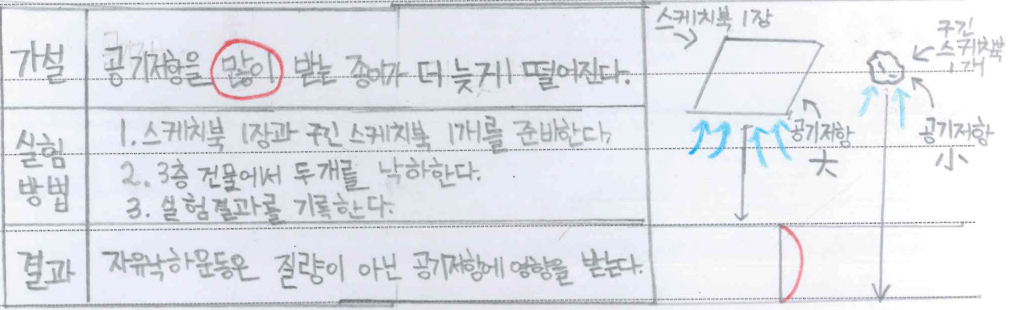 가설
공기저항을 많이 받는 종이가 더 늦게 떨어진다.
실험
방법
1. 스케치북 1장과 구긴 스케치북 1개를 준비한다.
2. 3층 건물에서 두개를 낙하한다.
3. 실험결과를 기록한다.
결과
자유낙하운동은 질량이 아닌 공기저항에 영향을 받는다.
스케치북 1장
공기저항
大
구긴
스케치북
1개
공기저항
小